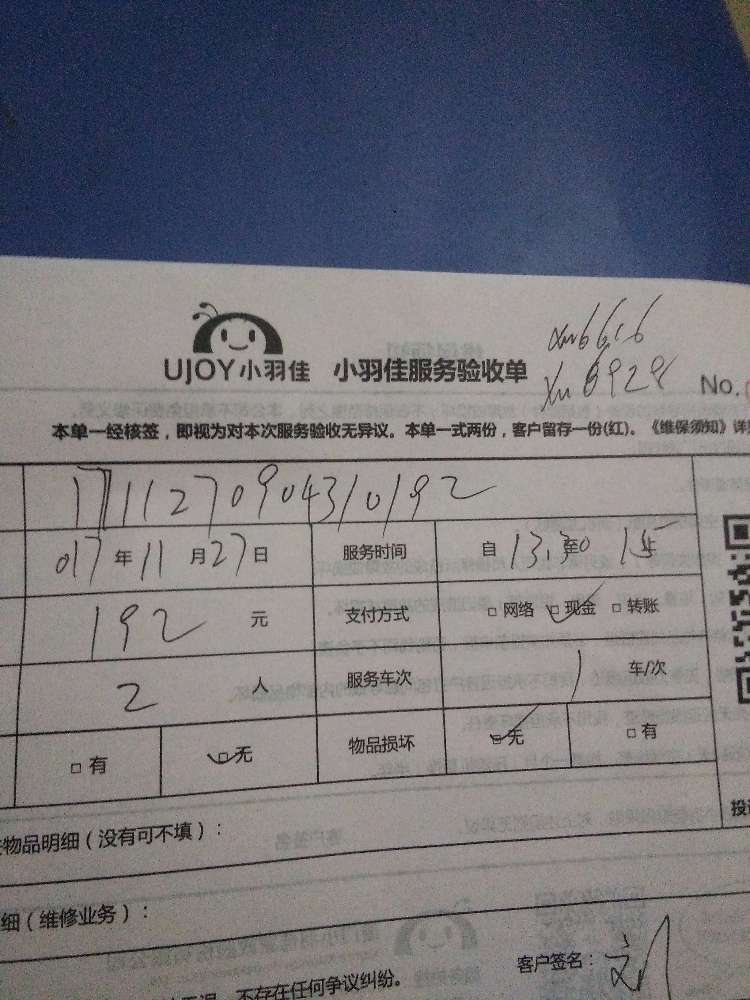 xu6616
UJOY小羽佳 小羽佳服务验收单 xu8928 No.
本单一经核签，即视为对本次服务验收无异议。本单一式两份，客户留存一份(红)。《维保须知》详
1711270904310192
017年11月27日 服务时间 自13:30至15
192元 支付方式 □网络 ☑现金 □转账
2人 服务车次 1车/次
□有 ☑无 物品损坏 ☑无 □有
投
物品明细（没有可不填）：
细（维修业务）：
客户签名：刘
不存在任何争议纠纷。